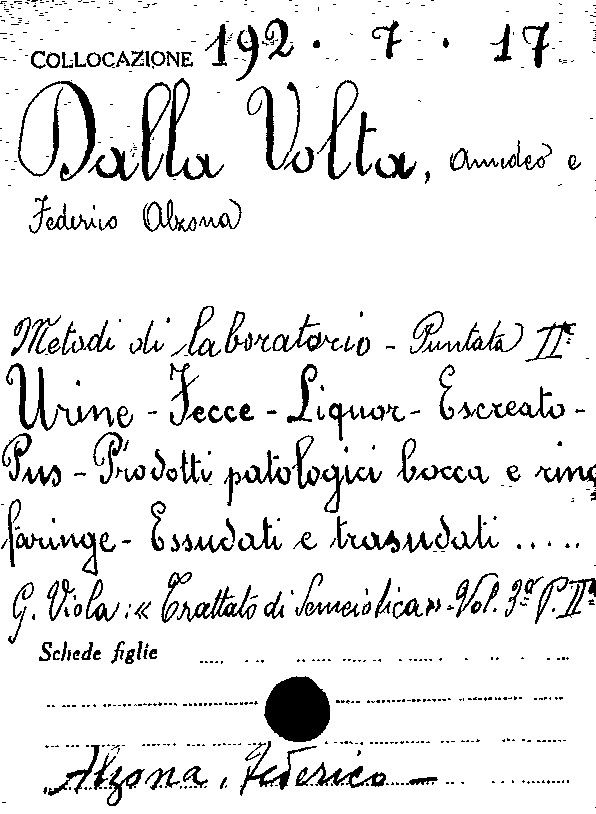 COLLOCAZIONE 192 · 7 · 17
Dalla Volta, Amideo e
Federico Alzona
Metodi di laboratorio - Puntata IIª
Urine - Fecce - Liquor - Escreato -
Pus - Prodotti patologici bocca e rino
faringe - Essudati e trasudati .....
G. Viola: « Trattato di Semeiotica » - Vol. 3º P. IIª
Schede figlie
Alzona, Federico -